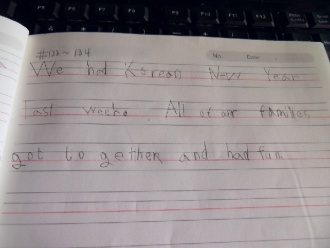 #133~134
No. Date
We had Korean New Year
last weeke. All of our families
got to gether and had fun